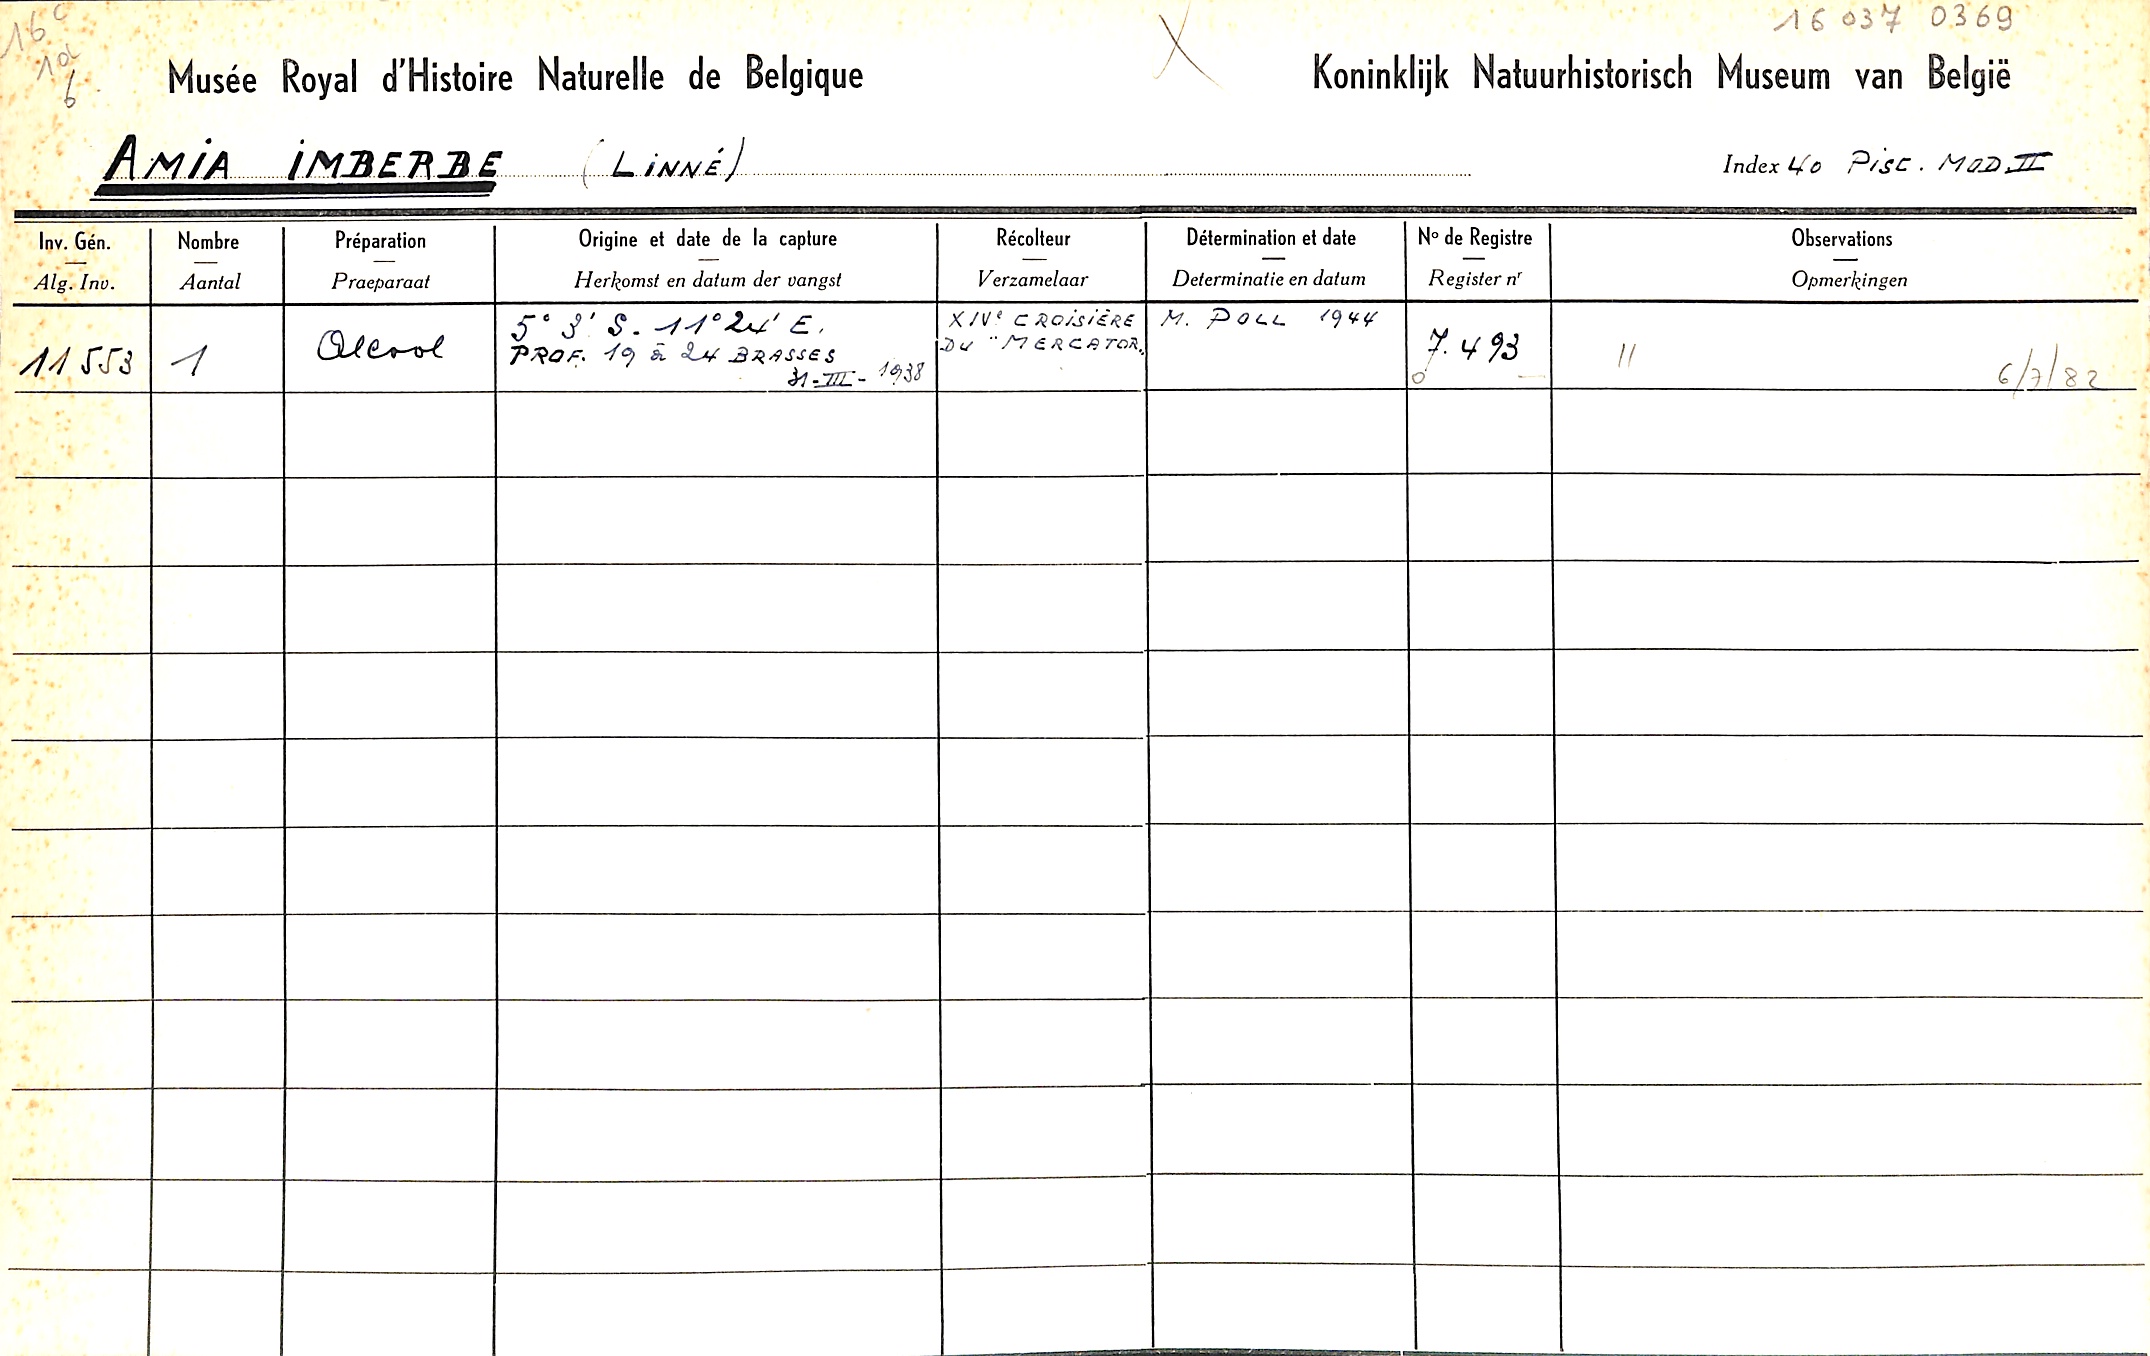 16c
1d
6
16 037 0369
Musée Royal d'Histoire Naturelle de Belgique
Koninklijk Natuurhistorisch Museum van België
AMIA IMBERBE (LINNÉ)
Index 40 PISC. MOD. II
Inv. Gén. Nombre Préparation Origine et date de la capture Récolteur Détermination et date No de Registre Observations
Alg. Inv. Aantal Praeparaat Herkomst en datum der vangst Verzamelaar Determinatie en datum Register nr Opmerkingen
11553
1
Alcool
5° 3' S. - 11° 24' E.
PROF. 19 à 24 BRASSES
31-III-1938
XIVe CROISIÈRE
DU "MERCATOR.
M. POLL 1944
7.493
11
6/7/82